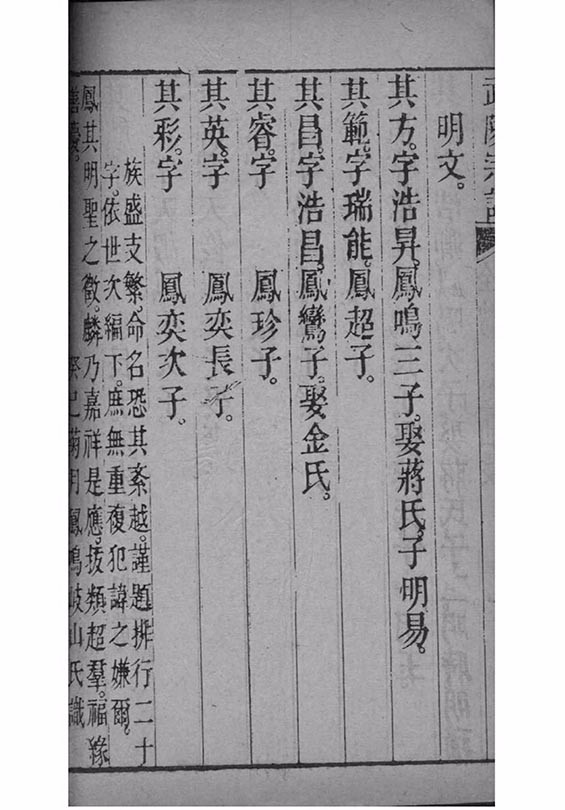 明文。
其方。字浩昇。鳳鳴三子。娶蔣氏。子明易。
其範。字瑞能。鳳超子。
其昌。字浩昌。鳳鸞子。娶金氏。
其睿。字　鳳珍子。
其英。字　鳳奕長子。
其彩。字　鳳奕次子。
族盛支繁。命名恐其紊越。謹題排行二十
字。依世次編下。庶無重複犯諱之嫌爾。
鳳其明聖之徵。麟乃嘉祥是應。拔類超羣。福緣
善慶。　癸巳菊月鳳鳴岐山氏識